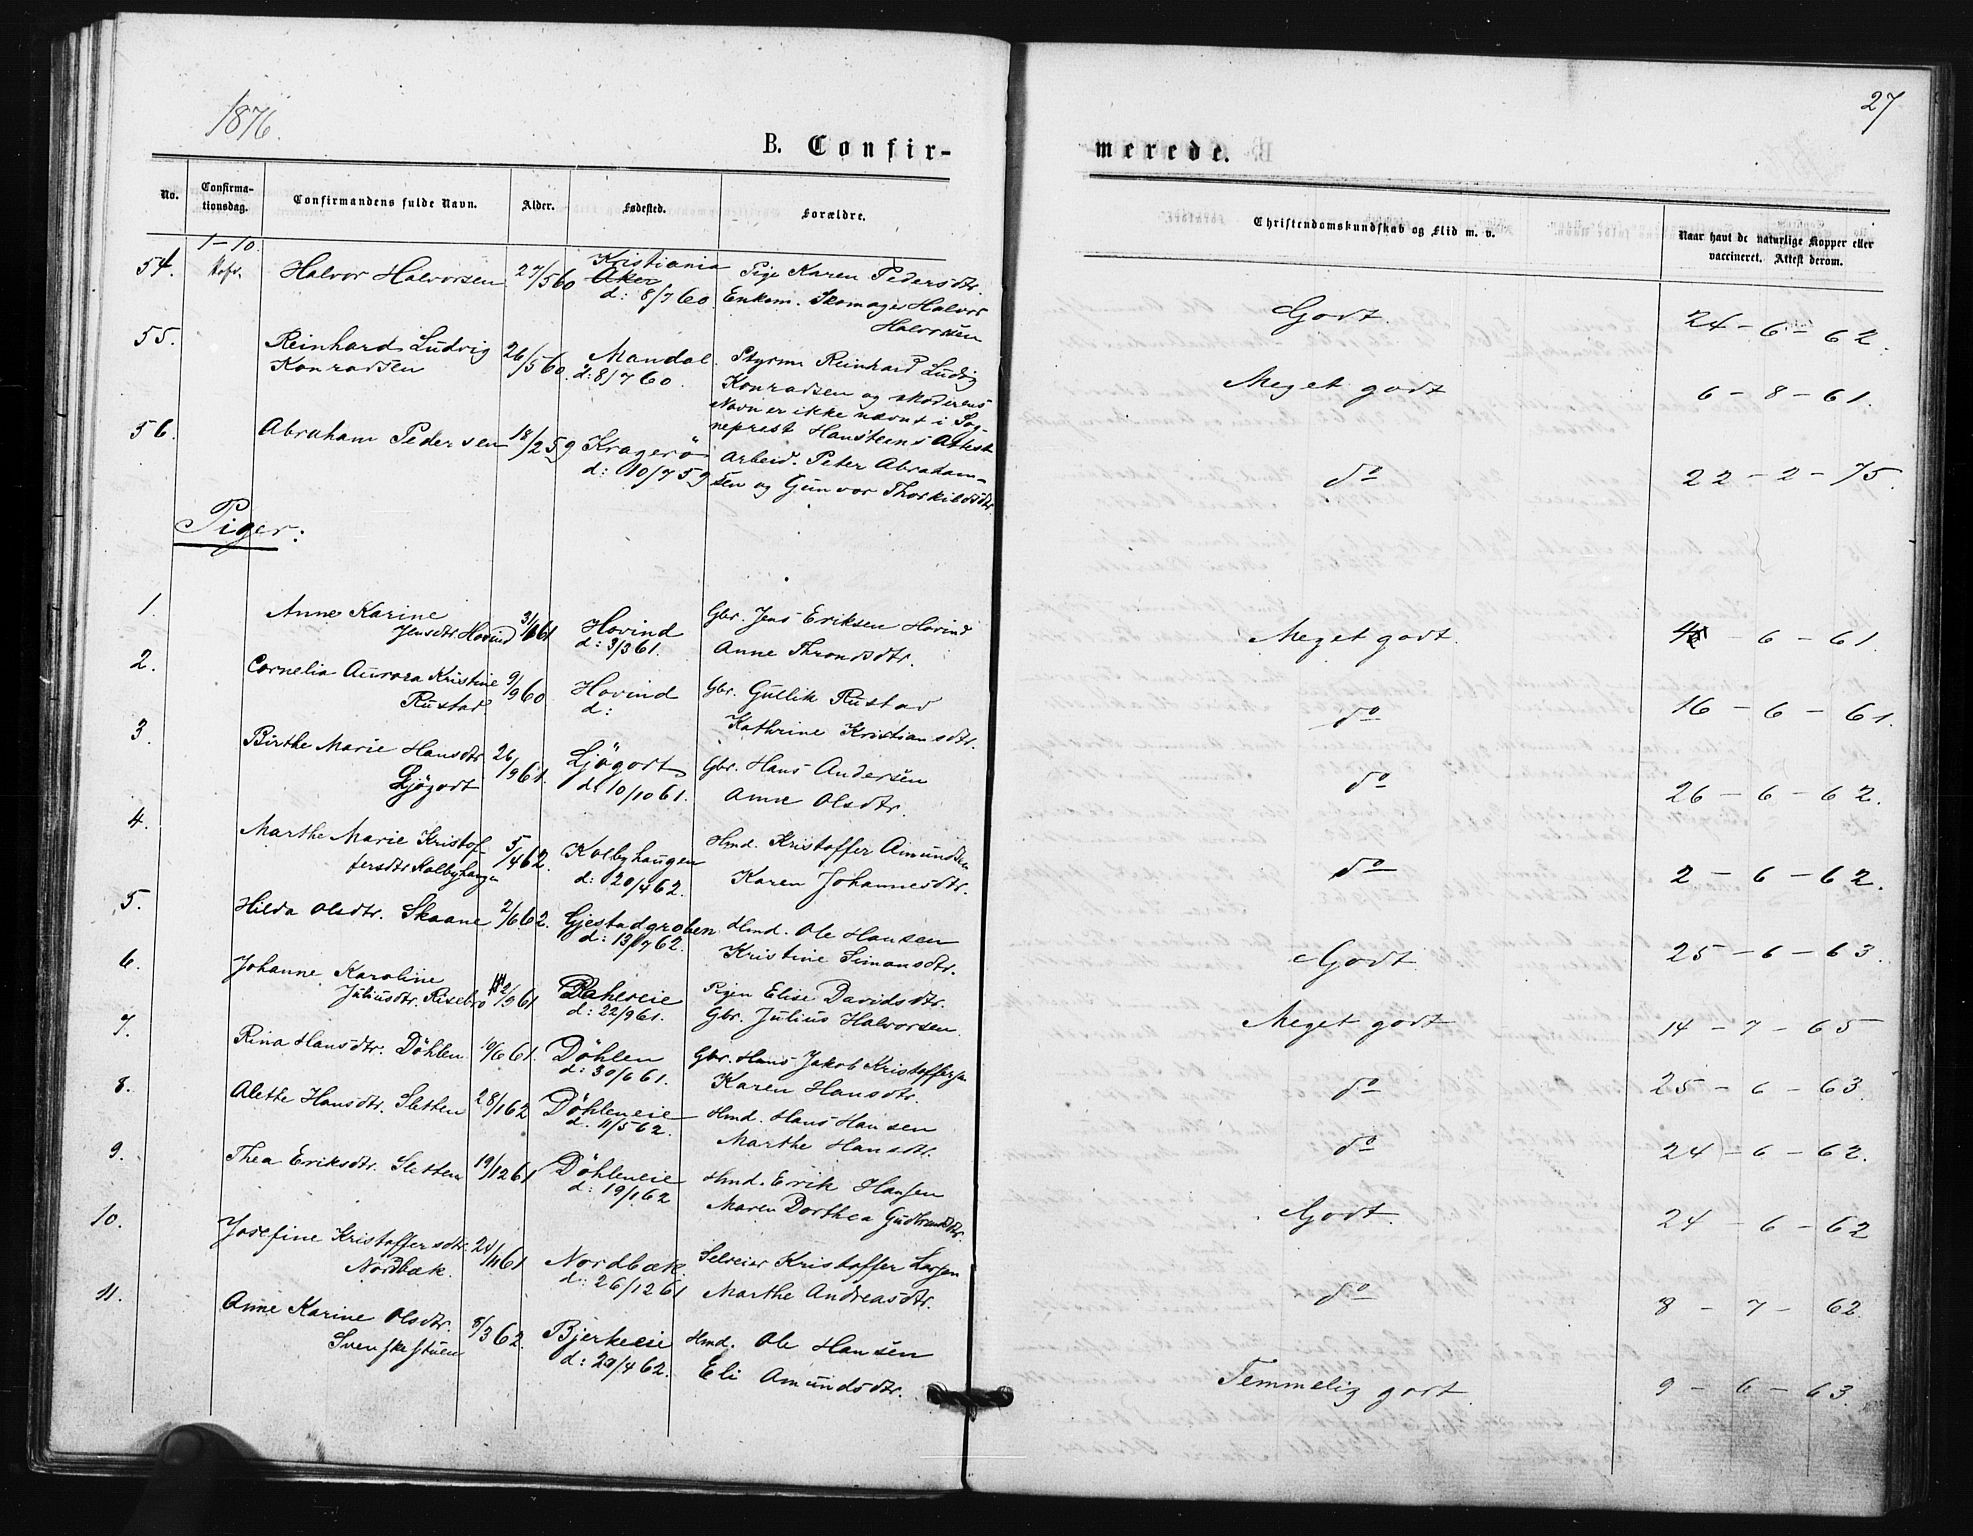 1876.
27
B. Confir-
merede.
No.
Confirma-
tionsdag.
Confirmandens fulde Navn.
Alder.
Fødested.
Forældre.
Christendomskundskab og Flid m. v.
Naar havt de naturlige Kopper eller
vaccineret. Attest derom.
1-10.
54.
Halvor Halvorsen
27/5 60
Kristiania
Aker
d: 8/7 60
Pige Karen Pedersdtr.
Enkem. Skomager Halvor
Halvorsen
Godt.
24 - 6 - 62.
55.
Reinhard Ludvig
Konradsen
26/5 60.
Mandal
d: 8/7 60.
Styrm Reinhard Ludvig
Konradsen og Moderens
Navn er ikke nævnt i Sog-
neprest Hansteens Attest
Meget godt
6 - 8 - 61.
56.
Abraham Pedersen
18/2 59
Kragerö
d: 10/7 59
Arbeid. Peter Abraham-
sen og Gunvor Thorkildsdtr.
do
22 - 2 - 75.
Piger:
1.
Anne Karine
Jensdtr. Hovind
Hovind
d: 3/3 61.
Gbr. Jens Eriksen Hovind
Anne Throndsdtr.
Meget godt.
- 6 - 61.
2.
Cornelia Aurora Kristine
Rustad
9/9 60
Hovind
d:
Gbr. Gullik Rustad
Kathrine Kristiansdtr.
do
16 - 6 - 61.
3.
Birthe Marie Hansdtr.
Ljögodt
26/9 61.
Ljögodt
d: 10/10 61.
Gbr. Hans Andersen
Anne Olsdtr.
do
26 - 6 - 62.
4.
Marthe Marie Kristof-
fersdtr Kolbyhaugen
5/4 62.
Kolbyhaugen
d: 20/4 62.
Hmd. Kristoffer Amundsen
Karen Johannesdtr.
do
2 - 6 - 62.
5.
Hilda Olsdtr. Skaane
2/6 62.
Gjestadgroben
d: 13/7 62.
Hmd. Ole Hansen
Kristine Simensdtr.
Godt
25 - 6 - 63.
6.
Johanne Karoline
Juliusdtr. Risebro
Dahleeie
d: 22/9 61.
Pigen Elise Davidsdtr.
Gbr. Julius Halvorsen
Meget godt
14 - 7 - 65
7.
Rina Hansdtr. Döhlen
Döhlen
d: 30/6 61.
Gbr. Hans Jakob Kristoffersen
Karen Hansdtr.
do
25 - 6 - 63.
8.
Alette Hansdtr. Sletten
28/1 62
Döhleneie
d. 11/5 62.
Hmd. Hans Hansen
Marthe Hansdtr.
do
24 - 6 - 62.
9.
Thea Eriksdtr. Sletten
19/12 61
Döhleneie
d: 19/1 62
Hmd. Erik Hansen
Maren Dorthea Gudbrandsdtr.
Godt.
24 - 6 - 62
10.
Josefine Kristoffersdtr.
Nordbæk.
24/11 61
Nordbæk
d: 26/12 61
Selveier Kristoffer Larsen
Marthe Andreasdtr.
do
8 - 7 - 62.
11.
Anne Karine Olsdtr.
Svenskestuen
8/3 62.
Bjerkeeie
d: 20/4 62.
Hmd. Ole Hansen
Eli Amundsdtr.
Temmelig godt.
9 - 6 - 63.